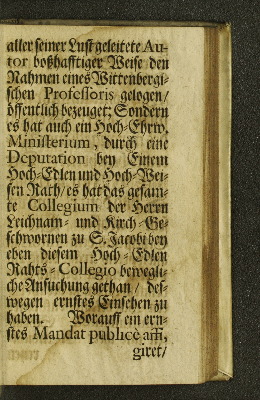 aller seiner Lust geleitete Au-
tor boßhafftiger Weise den
Nahmen eines Wittenbergi-
schen Professoris gelogen/
öffentlich bezeuget; Sondern
es hat auch ein Hoch-Ehrw.
Ministerium, durch eine
Deputation bey Einem
Hoch-Edlen und Hoch-Wei-
sen Rath/ es hat das gesam-
te Collegium der Herrn
Leichnam- und Kirch-Ge-
schwornen zu S. Jacobi bey
eben diesem Hoch-Edlen
Rahts-Collegio bewegli-
che Ansuchung gethan/ des-
wegen ernstes Einsehen zu
haben. Worauff ein ern-
stes Mandat publicè affi,
giret/